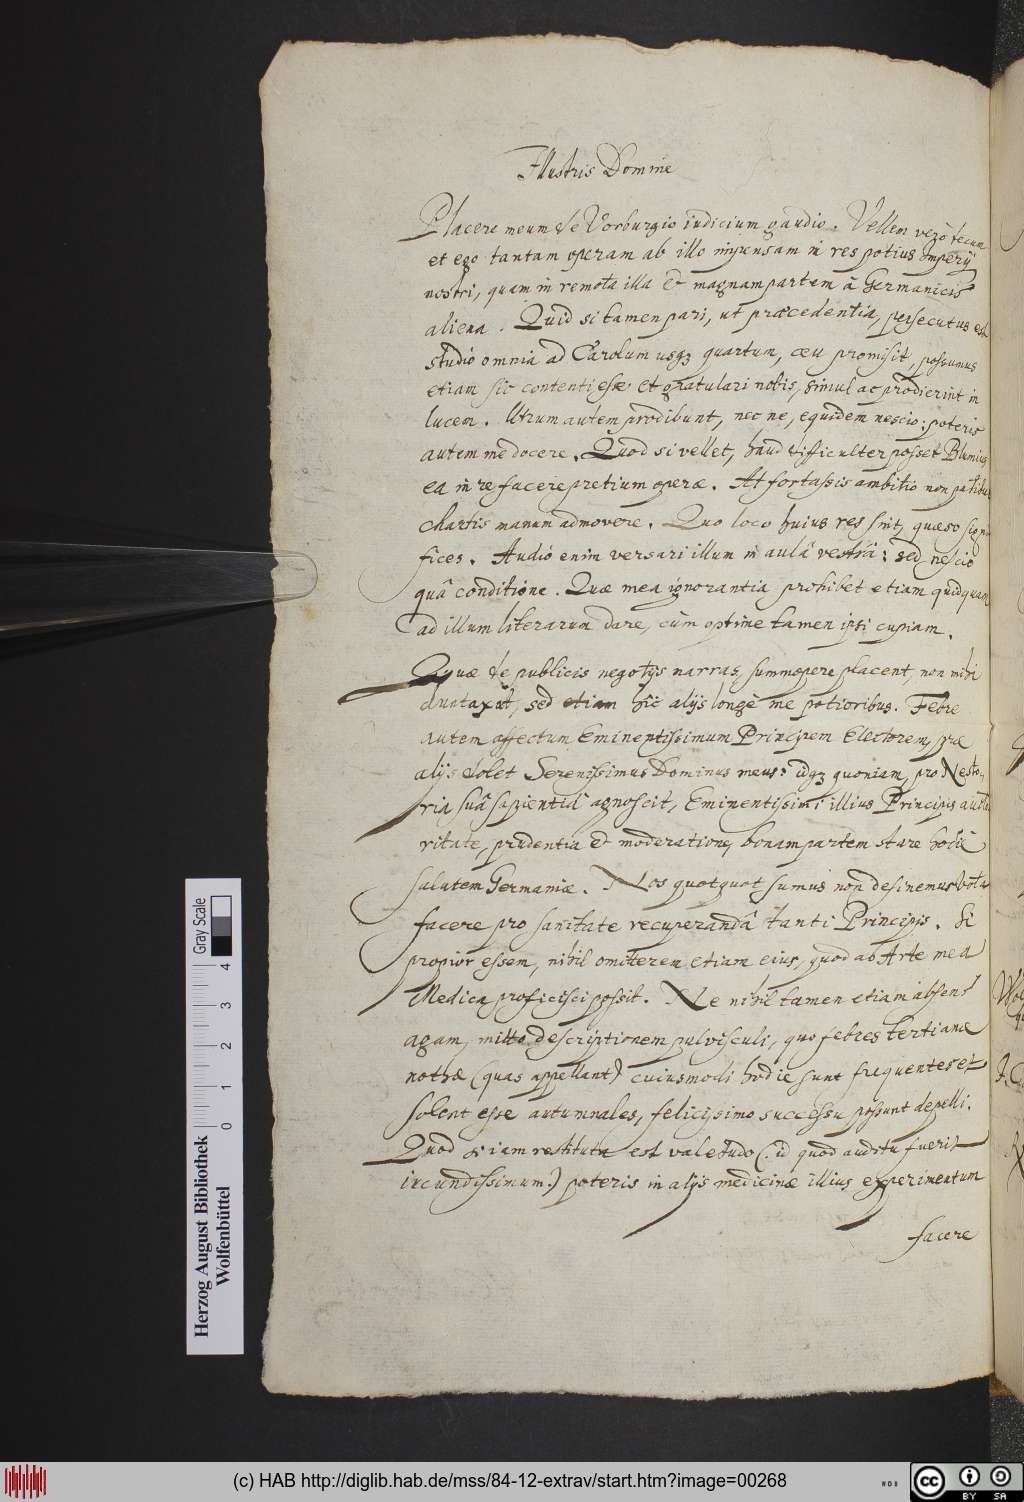 Illustris Domine
Placere meum de Vorburgio iudicium gaudio. Vellem vero tecum
et ego tantam operam ab illo impensam in res potius Imperij
nostri, quam in remota illa & magnam partem à Germanicis
aliena. Quid si tamen pari, ut præcedentia, persecutus est
studio omnia ad Carolum usq3 quartum, ceu promisit, possumus
etiam sic contenti esse et gratulari nobis, simul ac prodierint in
lucem. Utrum autem prodibunt, nec ne, equidem nescio: poteris
autem me docere. Quod si vellet, haud difficulter posset Blumius
ea in re facere pretium operæ. At fortassis ambitio non patitur
chartis manum admovere. Quo loco huius res sint, quæso signi-
fices. Audio enim versari illum in aulâ vestrâ: sed nescio
quâ conditione. Quæ mea ignorantia prohibet etiam quidquam
ad illum literarum dare, cùm optime tamen ipsi cupiam.
Quæ de publicis negotijs narras, summopere placent, non mihi
duntaxat, sed etiam hîc alijs longè me potioribus. Febre
autem affectum Eminentissimum Principem Electorem, præ
alijs dolet Serenissimus Dominus meus: idq3 quoniam, pro Nesto-
riâ suâ sapientiâ agnoscit, Eminentissimi illius Principis aucto
ritate, prudentia & moderatione, bonam partem stare hodiè
salutem Germaniæ. Nos quotquot sumus non desinemus vota
facere pro sanitate recuperandâ tanti Principis. Si
propior essem, nihil omitterem etiam eius, quod ab Arte mea
Medica proficisci possit. Ne nihil tamen etiam absens
agam, mitto descriptionem pulvisculi, quo febres tertianæ
nothæ (quas appellant) cuiusmodi hodie sunt frequentes et
solent esse autumnales, felicissimo successu possunt depelli.
Quod si iam restituta est valetudo (: id quod auditu fuerit
iucundissimum:) poteris in alijs medicinæ illius experimentum
facere
Herzog August Bibliothek
Wolfenbüttel
0 1 2 3 4
Gray Scale
(c) HAB http://diglib.hab.de/mss/84-12-extrav/start.htm?image=00268
WDB
cc BY SA